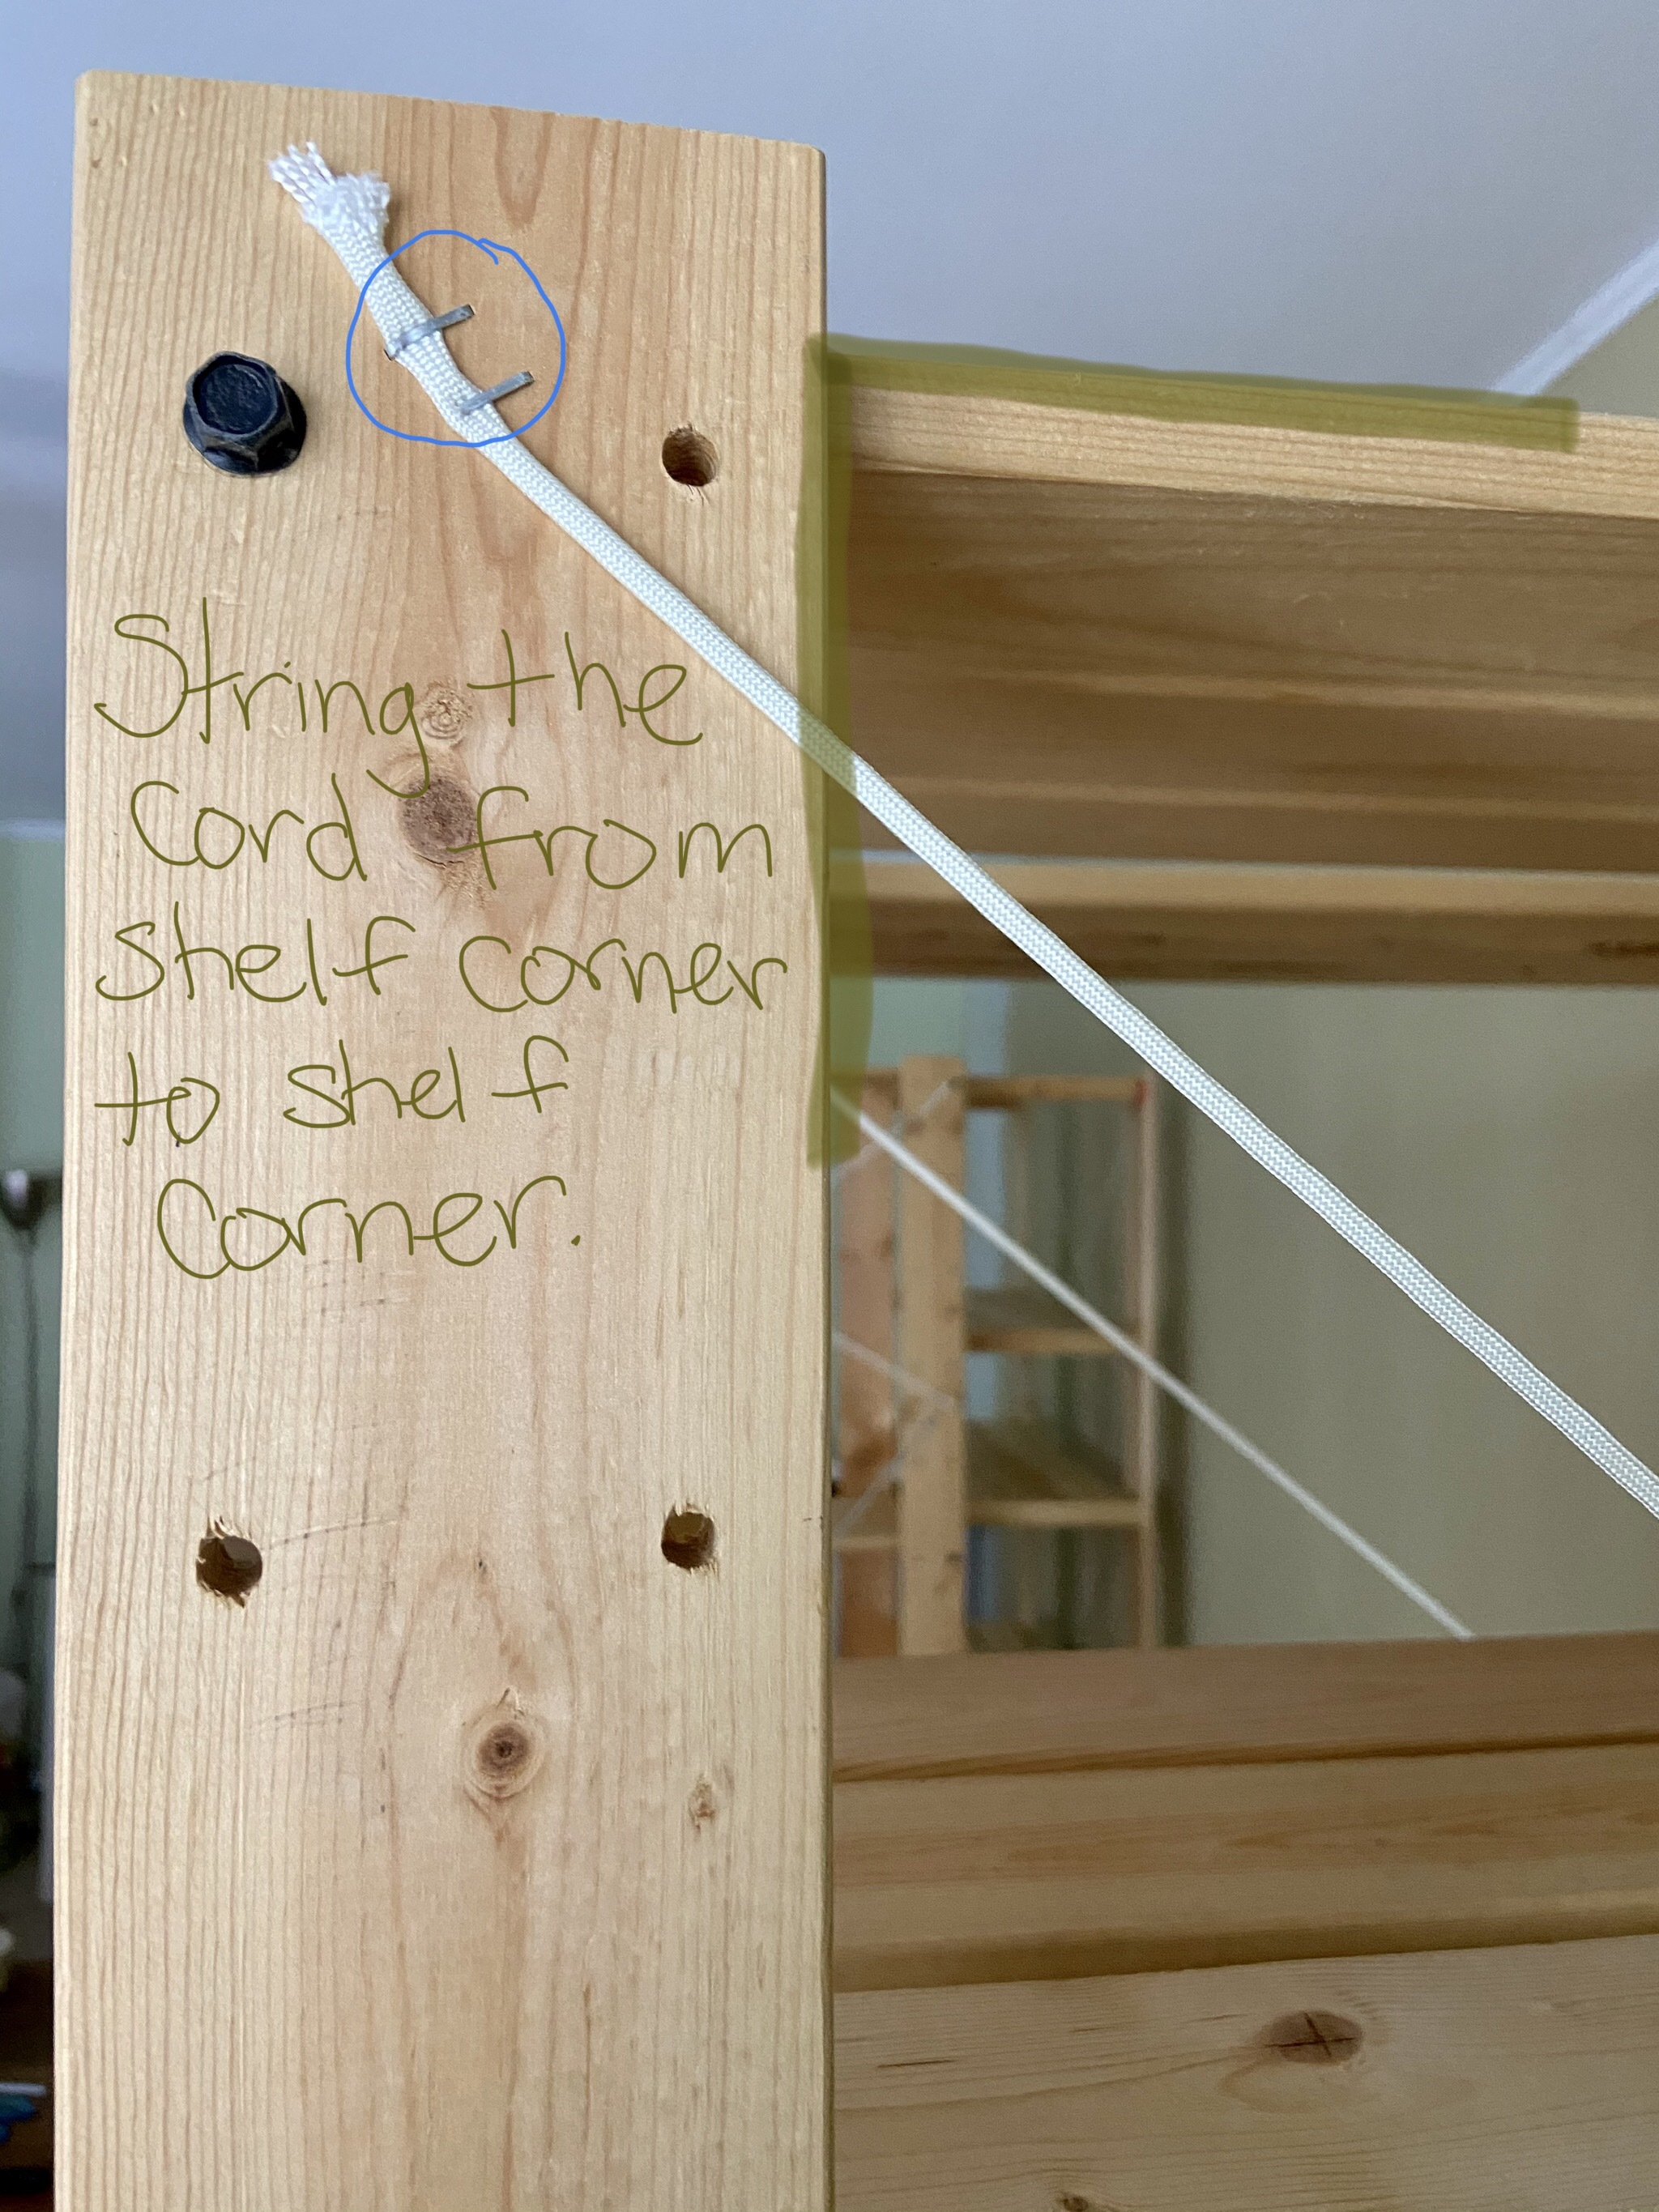 String the
Cord from
shelf corner
to shelf
Corner.